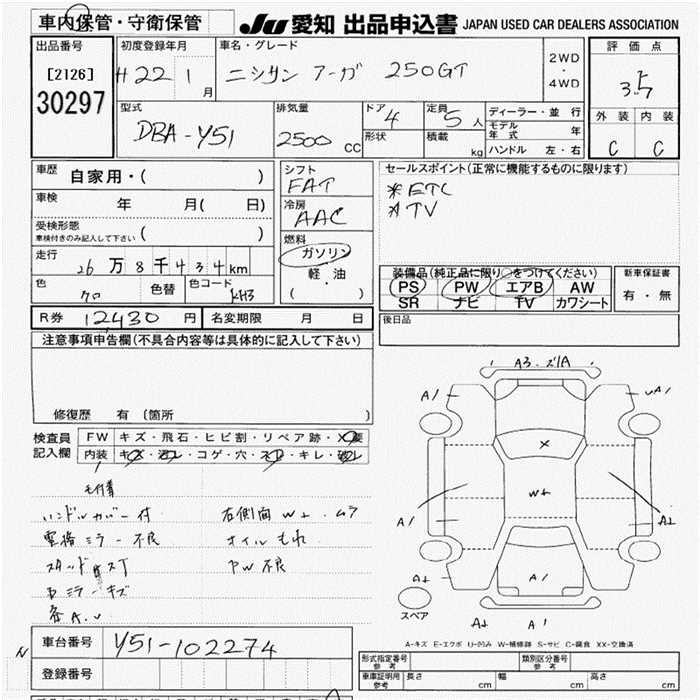 車内保管・守衛保管
JU 愛知 出品申込書 JAPAN USED CAR DEALERS ASSOCIATION
出品番号
[2126]
30297
初度登録年月
H22 1 月
車名・グレード
ニッサン フーガ 250GT
2WD
・
4WD
評価点
3.5
外装 内装
C C
型式
DBA-Y51
排気量
2500 CC
ドア 4
形状
定員 5 人
積載 kg
ディーラー・並行
モデル年式 年
ハンドル 左・右
車歴 自家用・( )
車検 年 月( 日)
受検形態
車検付きのみ記入して下さい ( )
走行 26万8千434km
色 クロ 色替 色コード KH3
シフト
FAT
冷房
AAC
燃料
ガソリン
軽・油
( )
セールスポイント(正常に機能するものに限ります)
*ETC
*TV
装備品(純正品に限り○をつけてください)
PS PW エアB AW
SR ナビ TV カワシート
新車保証書
有・無
R券 12,430 円 名変期限 月 日
後日品
注意事項申告欄(不具合内容等は具体的に記入して下さい)
修復歴 有 〔箇所 〕
検査員記入欄
FW キズ・飛石・ヒビ割・リペア跡・×要
内装 キズ・汚レ・コゲ・穴・スレ・キレ・破レ
ハンドルカバー付 右側面W2・ムラ
電格ミラー不良 オイルもれ
PW不良
ミラーキズ
各A.U
A3・ズ1A
A1
A1
A1
A2
W2
A1
A2
A2
A1
スペア
A-キズ E-エクボ U-凹み W-補修跡 S-サビ C-腐食 XX-交換済
車台番号 Y51-102274
登録番号
N
形式指定番号 参考
類別区分番号 参考
車庫証明用 参考 長さ cm 幅 cm 高さ cm